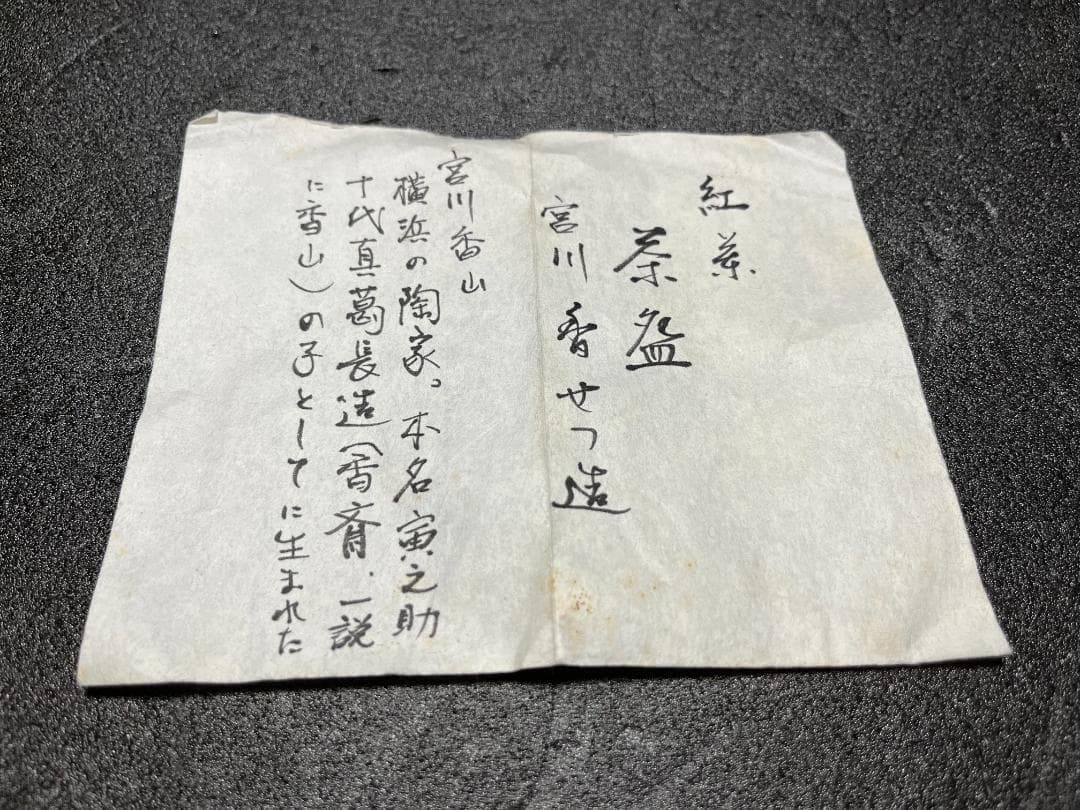 紅葉
茶盌
宮川香せつ造
宮川香山
横浜の陶家。本名寅之助
十代真葛長造(香斎.一説
に香山)の子としてに生まれた